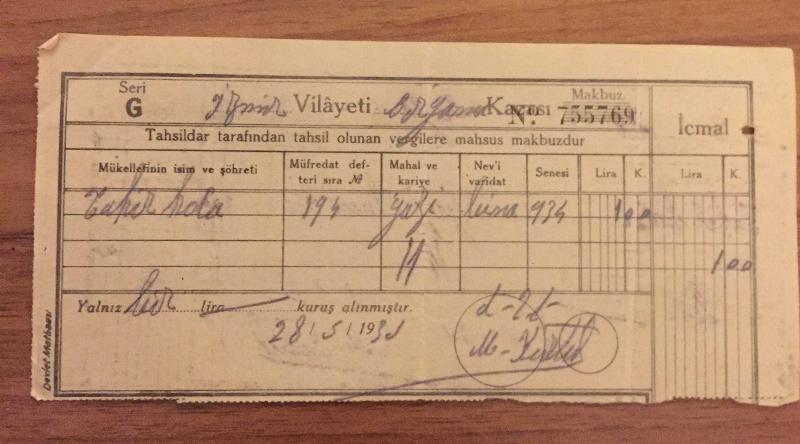 Seri
G
İzmir Vilâyeti Bergama Kazası
Makbuz
No. 755769
Tahsildar tarafından tahsil olunan vergilere mahsus makbuzdur
İcmal
Mükellefinin isim ve şöhreti Müfredat defteri sıra № Mahal ve kariye Nev'i varidat Senesi Lira K. Lira K.
Gazi bina 934 1 00
1 00
Yalnız bir lira kuruş alınmıştır.
28/5/193
Devlet Matbaası